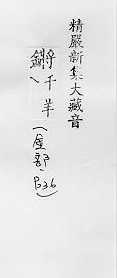 精嚴新集大藏音
鏘 千羊（部，P36）